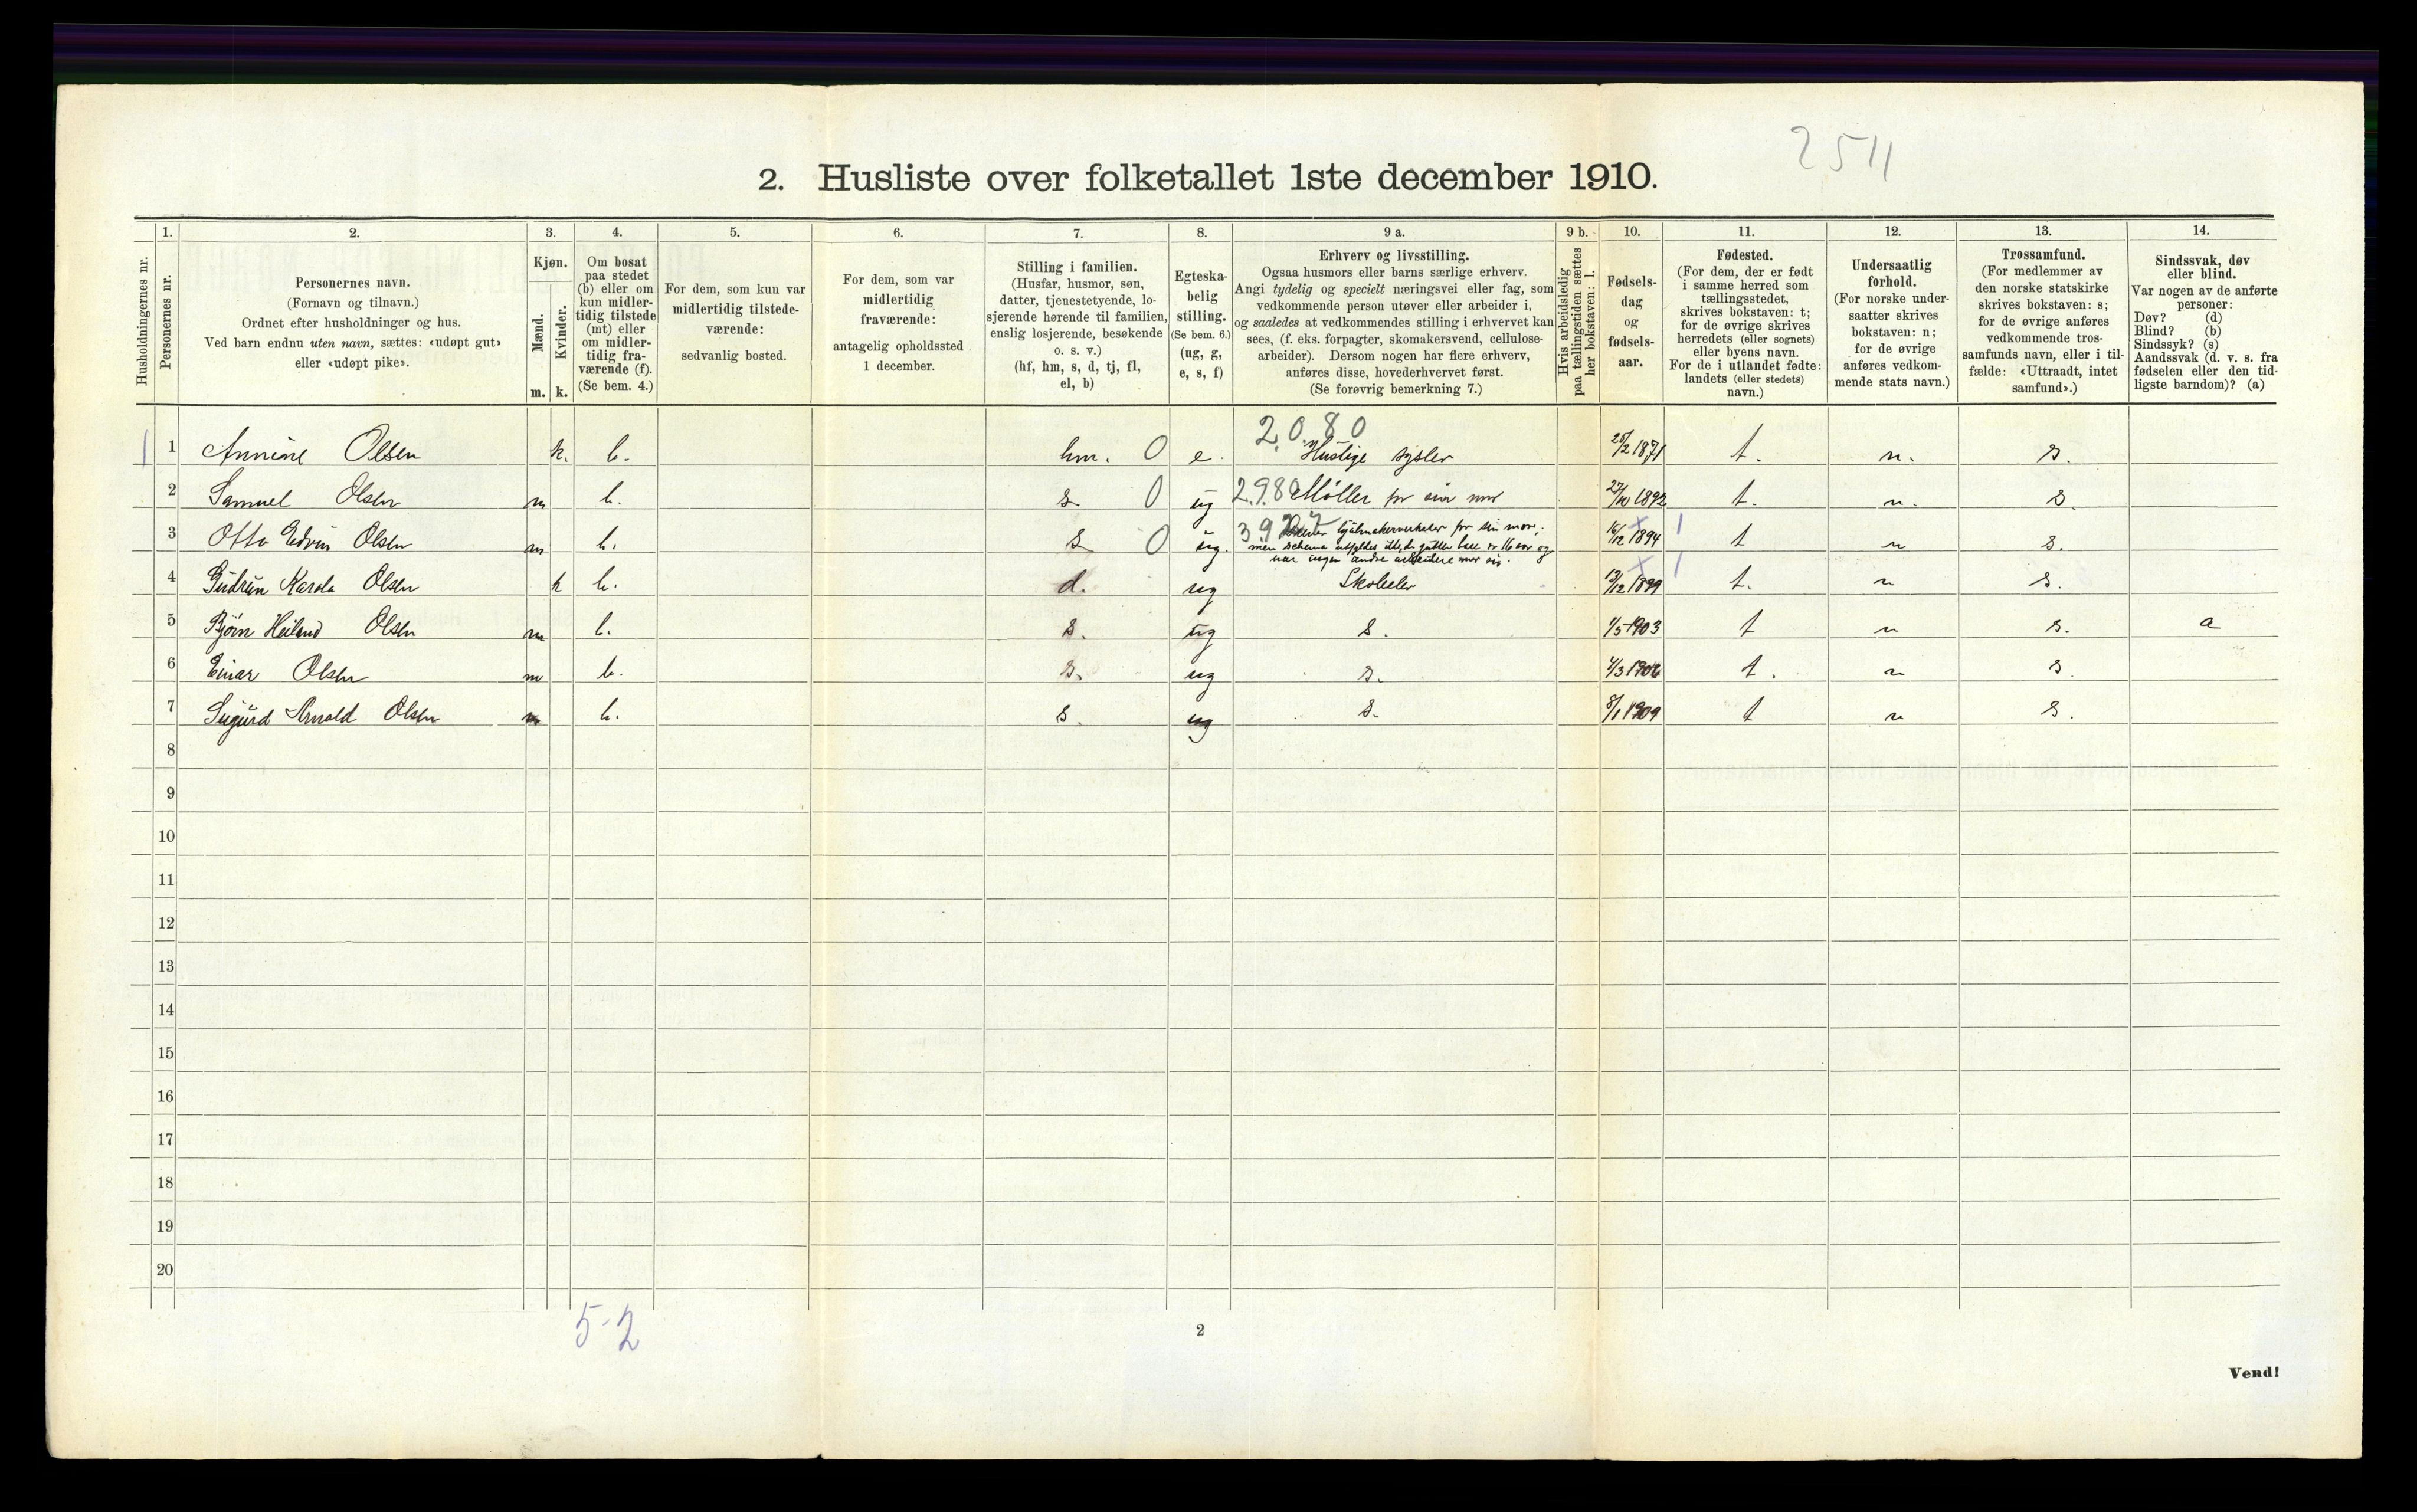 2511
2. Husliste over folketallet 1ste december 1910.
Husholdningernes nr.
1.
Personernes nr.
2.
Personernes navn.
(Fornavn og tilnavn.)
Ordnet efter husholdninger og hus.
Ved barn endnu uten navn, sættes: «udøpt gut»
eller «udøpt pike».
3.
Kjøn.
Mænd.
Kvinder.
m. k.
4.
Om bosat
paa stedet
(b) eller om
kun midler-
tidig tilstede
(mt) eller
om midler-
tidig fra-
værende (f).
(Se bem. 4.)
5.
For dem, som kun var
midlertidig tilstede-
værende:
sedvanlig bosted.
6.
For dem, som var
midlertidig
fraværende:
antagelig opholdssted
1 december.
7.
Stilling i familien.
(Husfar, husmor, søn,
datter, tjenestetyende, lo-
sjerende hørende til familien,
enslig losjerende, besøkende
o. s. v.)
(hf, hm, s, d, tj, fl,
el, b)
8.
Egteska-
belig
stilling.
(Se bem. 6.)
(ug, g,
e, s, f)
9 a.
Erhverv og livsstilling.
Ogsaa husmors eller barns særlige erhverv.
Angi tydelig og specielt næringsvei eller fag, som
vedkommende person utøver eller arbeider i,
og saaledes at vedkommendes stilling i erhvervet kan
sees, (f. eks. forpagter, skomakersvend, cellulose-
arbeider). Dersom nogen har flere erhverv,
anføres disse, hovederhvervet først.
(Se forøvrig bemerkning 7.)
9 b.
Hvis arbeidsledig
paa tællingstiden sættes
her bokstaven: l.
10.
Fødsels-
dag
og
fødsels-
aar.
11.
Fødested.
(For dem, der er født
i samme herred som
tællingsstedet,
skrives bokstaven: t;
for de øvrige skrives
herredets (eller sognets)
eller byens navn.
For de i utlandet fødte:
landets (eller stedets)
navn.)
12.
Undersaatlig
forhold.
(For norske under-
saatter skrives
bokstaven: n;
for de øvrige
anføres vedkom-
mende stats navn.)
13.
Trossamfund.
(For medlemmer av
den norske statskirke
skrives bokstaven: s;
for de øvrige anføres
vedkommende tros-
samfunds navn, eller i til-
fælde: «Uttraadt, intet
samfund».)
14.
Sindssvak, døv
eller blind.
Var nogen av de anførte
personer:
Døv? (d)
Blind? (b)
Sindssyk? (s)
Aandssvak (d. v. s. fra
fødselen eller den tid-
ligste barndom)? (a)
2.0.80
1 1 Annine Olsen k. b. hm. 0 e. Huslige sysler 25/2 1871 t. n. s.
2 Samuel Olsen m b. s. 0 ug 2980 Møller for sin mor 27/10 1892 t. n. s.
3 Otto Edvin Olsen m b. s 0 ug. for sin mor. 16/12 1894 t n s.
men schema utfyldes ikke, da gutten bare er 16 aar og
har ingen andre arbeidere mor sin.
4 Gudrun Karola Olsen k b. d. ug Skoleelev 13/12 1899 t. n s.
5 Bjørn Olsen m b. s. ug s. 1/5 1903 t n s. a
6 Einar Olsen m b. s. ug s. 4/3 1906 t. n s.
7 Sigurd Arnold Olsen m b. s. ug s. 8/1 1909 t n s.
8
9
10
11
12
13
14
15
16
17
18
19
20
5-2
2
Vend!